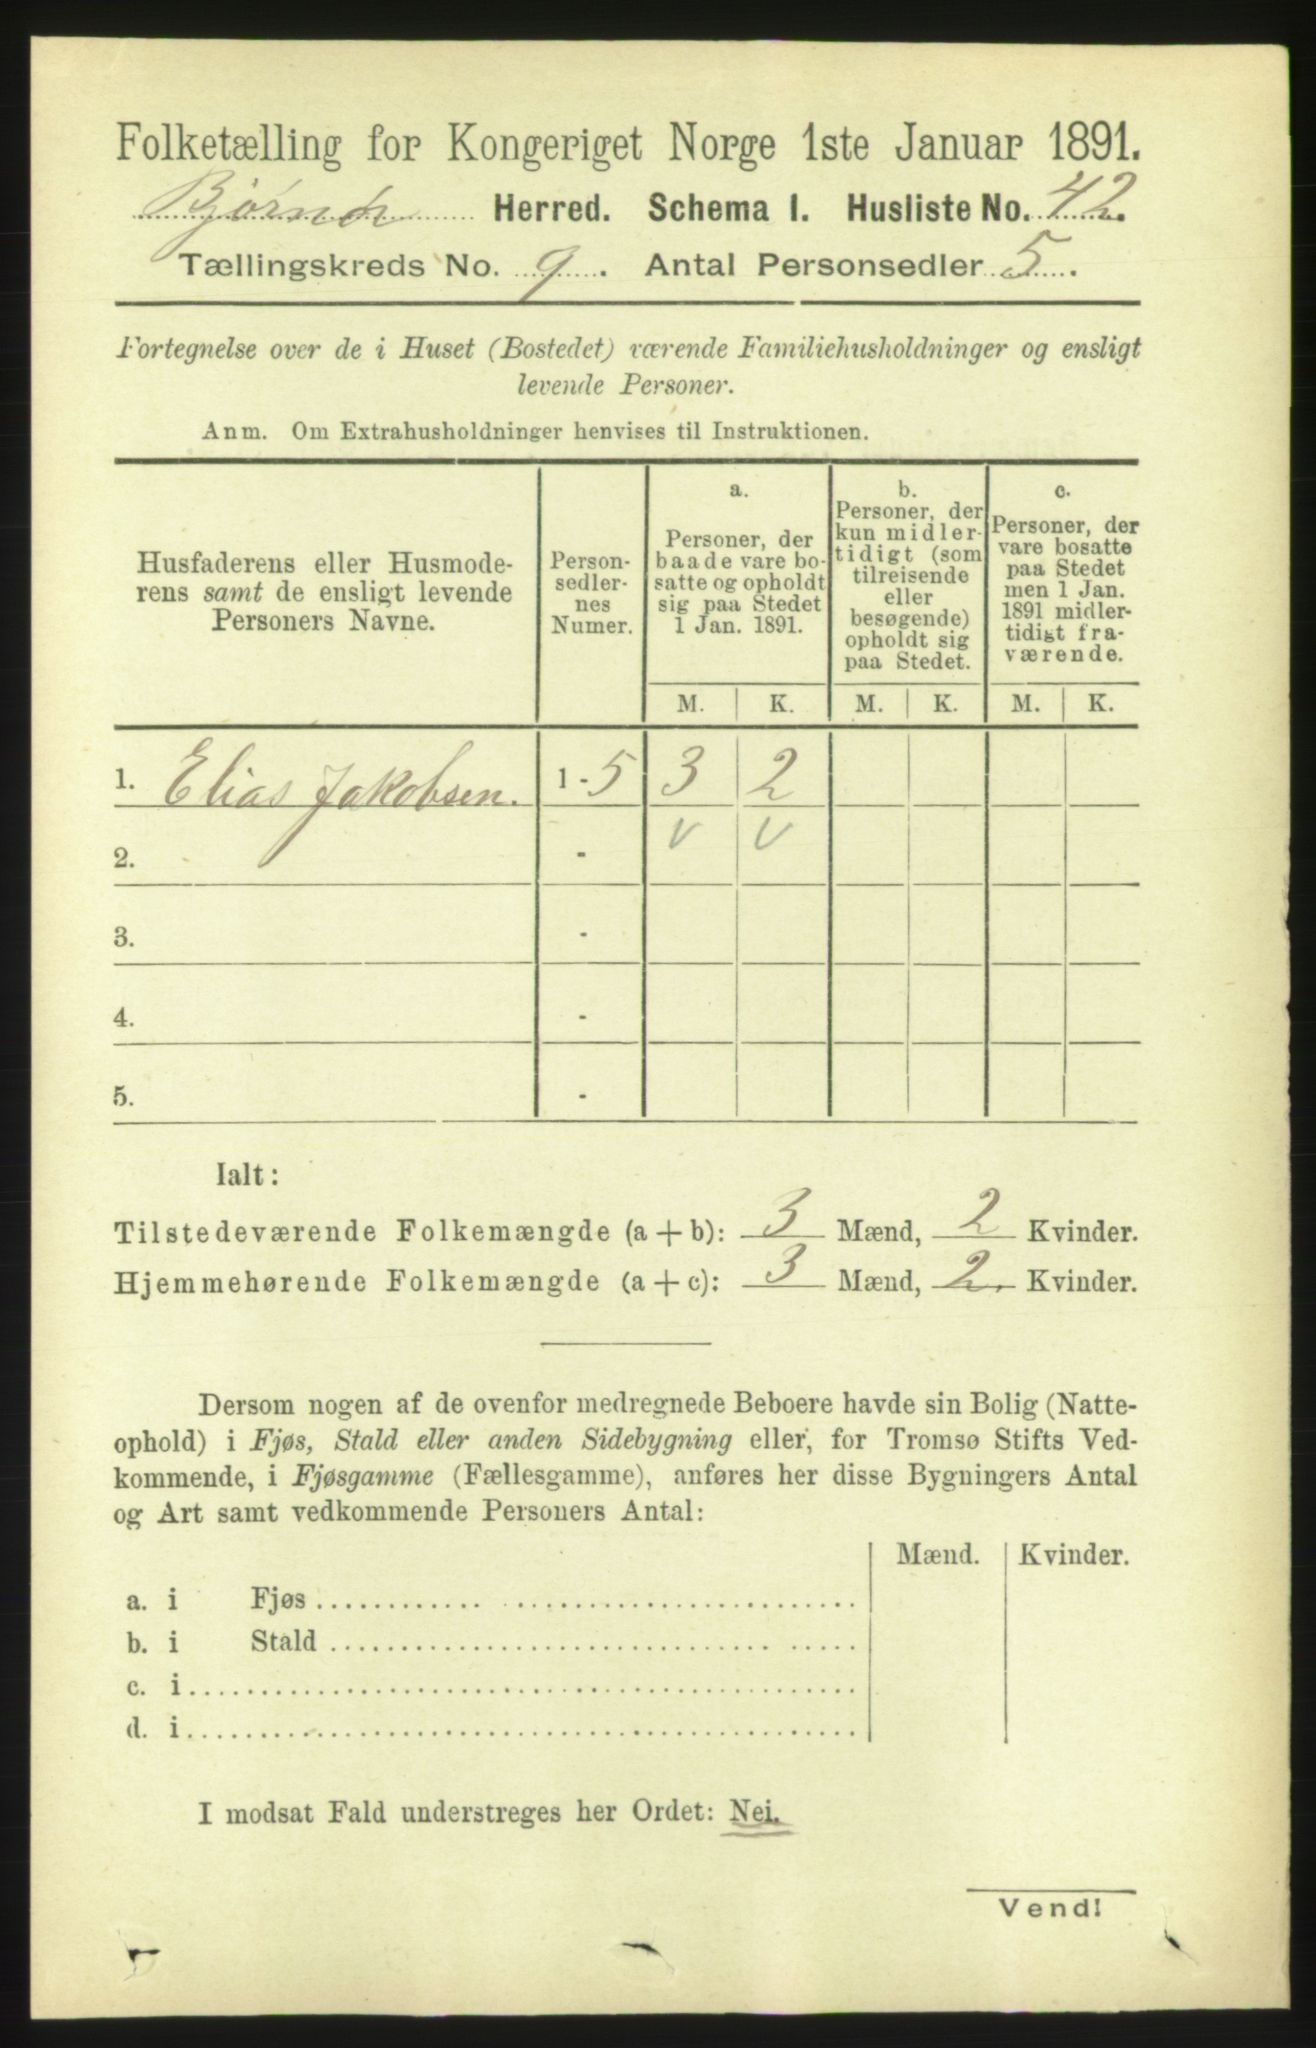 Folketælling for Kongeriget Norge 1ste Januar 1891.
Bjørnør Herred. Schema I. Husliste No. 42.
Tællingskreds No. 9. Antal Personsedler 5.
Fortegnelse over de i Huset (Bostedet) værende Familiehusholdninger og ensligt
levende Personer.
Anm. Om Extrahusholdninger henvises til Instruktionen.
Husfaderens eller Husmode-
rens samt de ensligt levende
Personers Navne.
Person-
sedler-
nes
Numer.
a.
Personer, der
baade vare bo-
satte og opholdt
sig paa Stedet
1 Jan. 1891.
b.
Personer, der
kun midler-
tidigt (som
tilreisende
eller
besøgende)
opholdt sig
paa Stedet.
c.
Personer, der
vare bosatte
paa Stedet
men 1 Jan.
1891 midler-
tidigt fra-
værende.
M. K. M. K. M. K.
1. Elias Jakobsen. 1 - 5 3 2
2. - v v
3. -
4. -
5. -
Ialt:
Tilstedeværende Folkemængde (a + b): 3 Mænd, 2 Kvinder.
Hjemmehørende Folkemængde (a + c): 3 Mænd, 2 Kvinder.
Dersom nogen af de ovenfor medregnede Beboere havde sin Bolig (Natte-
ophold) i Fjøs, Stald eller anden Sidebygning eller, for Tromsø Stifts Ved-
kommende, i Fjøsgamme (Fællesgamme), anføres her disse Bygningers Antal
og Art samt vedkommende Personers Antal:
Mænd. Kvinder.
a. i Fjøs
b. i Stald
c. i
d. i
I modsat Fald understreges her Ordet: Nei.
Vend!